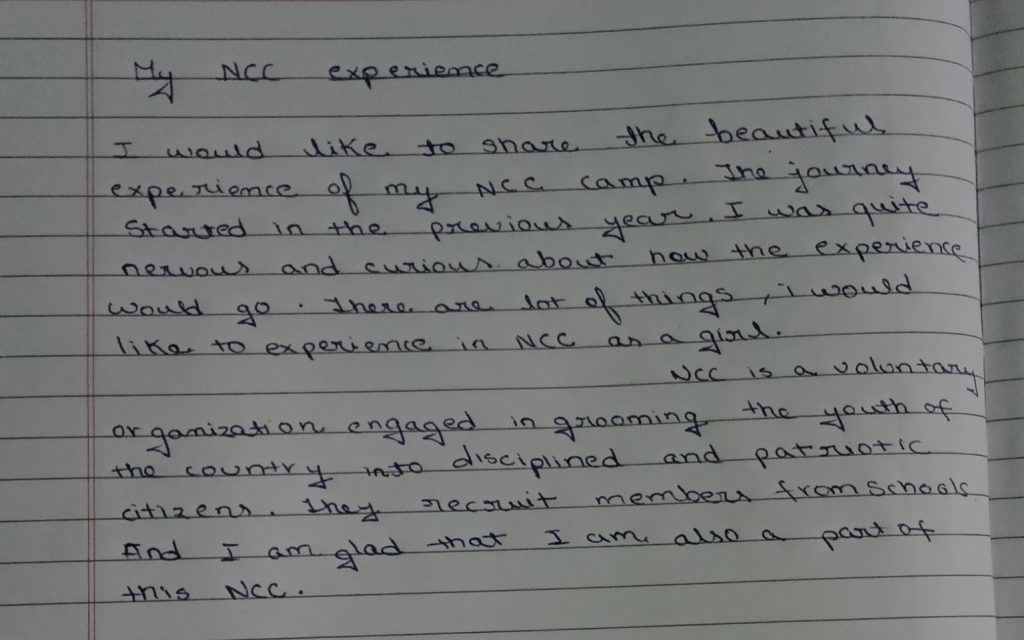 My NCC experience
I would like to share the beautiful
experience of my NCC camp. The journey
started in the previous year. I was quite
nervous and curious about how the experience
would go. There are lot of things, i would
like to experience in NCC as a girl.
NCC is a voluntary
organization engaged in grooming the youth of
the country into disciplined and patriotic
citizens. They recruit members from schools.
And I am glad that I am also a part of
this NCC.